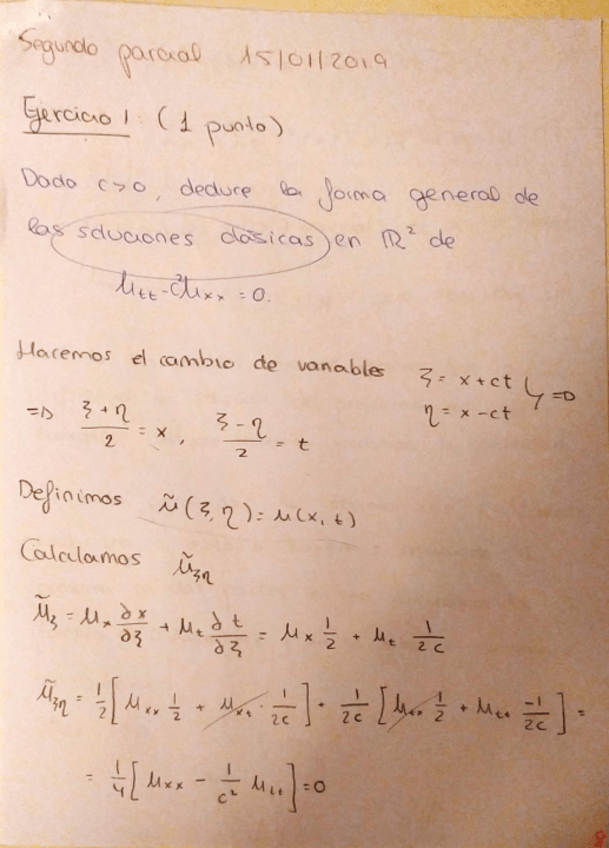 Segundo parcial 15/01/2019
Ejercicio 1: (1 punto)
Dado c>0, deduce la forma general de
las soluciones clásicas en ℝ² de
u_tt - c²u_xx = 0.
Hacemos el cambio de variables ξ = x + ct
η = x - ct } =>
=> (ξ + η)/2 = x, (ξ - η)/2 = t
Definimos ũ(ξ, η) = u(x, t)
Calculamos ũ_ξη
ũ_ξ = u_x ∂x/∂ξ + u_t ∂t/∂ξ = u_x 1/2 + u_t · 1/2c
ũ_ξη = 1/2 [u_xx 1/2 + u_xt · 1/2c] + 1/2c [u_tx 1/2 + u_tt -1/2c] =
= 1/4 [u_xx - 1/c² u_tt] = 0